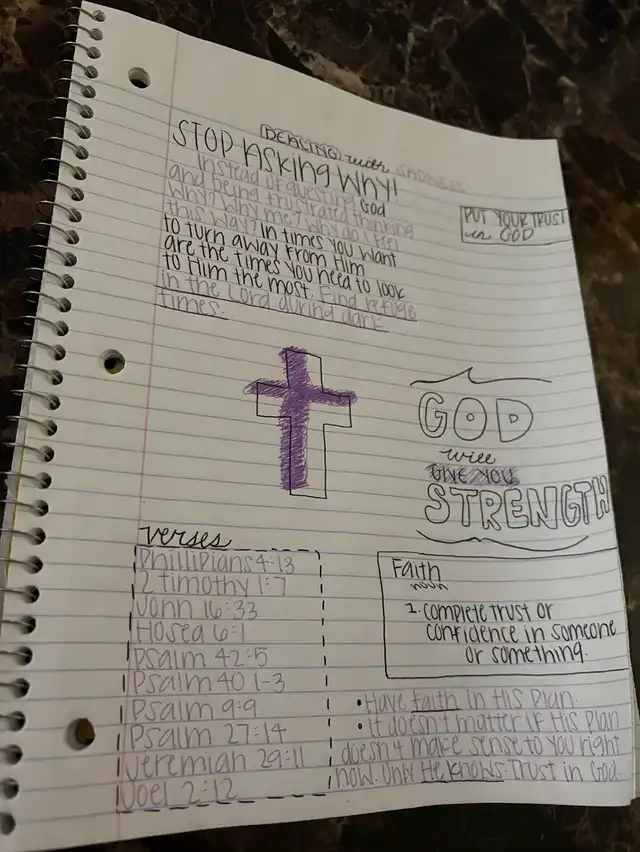 DEALING with SADNESS
STOP ASKING WHY!
Instead of questing God
and being frustrated thinking
Why? Why me? Why do I feel
this way? In times you want
to turn away from Him
are the times you need to look
to Him the most. Find refuge
in the Lord during dark
times.
PUT YOUR TRUST
in GOD
GOD
will
GIVE YOU
STRENGTH
verses
Phillipians 4:13
2 timothy 1:7
John 16:33
Hosea 6:1
Psalm 42:5
Psalm 40 1-3
Psalm 9:9
Psalm 27:14
Jeremiah 29:11
Joel 2:12
Faith
noun
1. complete trust or
confidence in someone
or something.
• Have faith in His Plan.
• It doesn't matter if His Plan
doesn't make sense to you right
now. Only He knows. Trust in God.